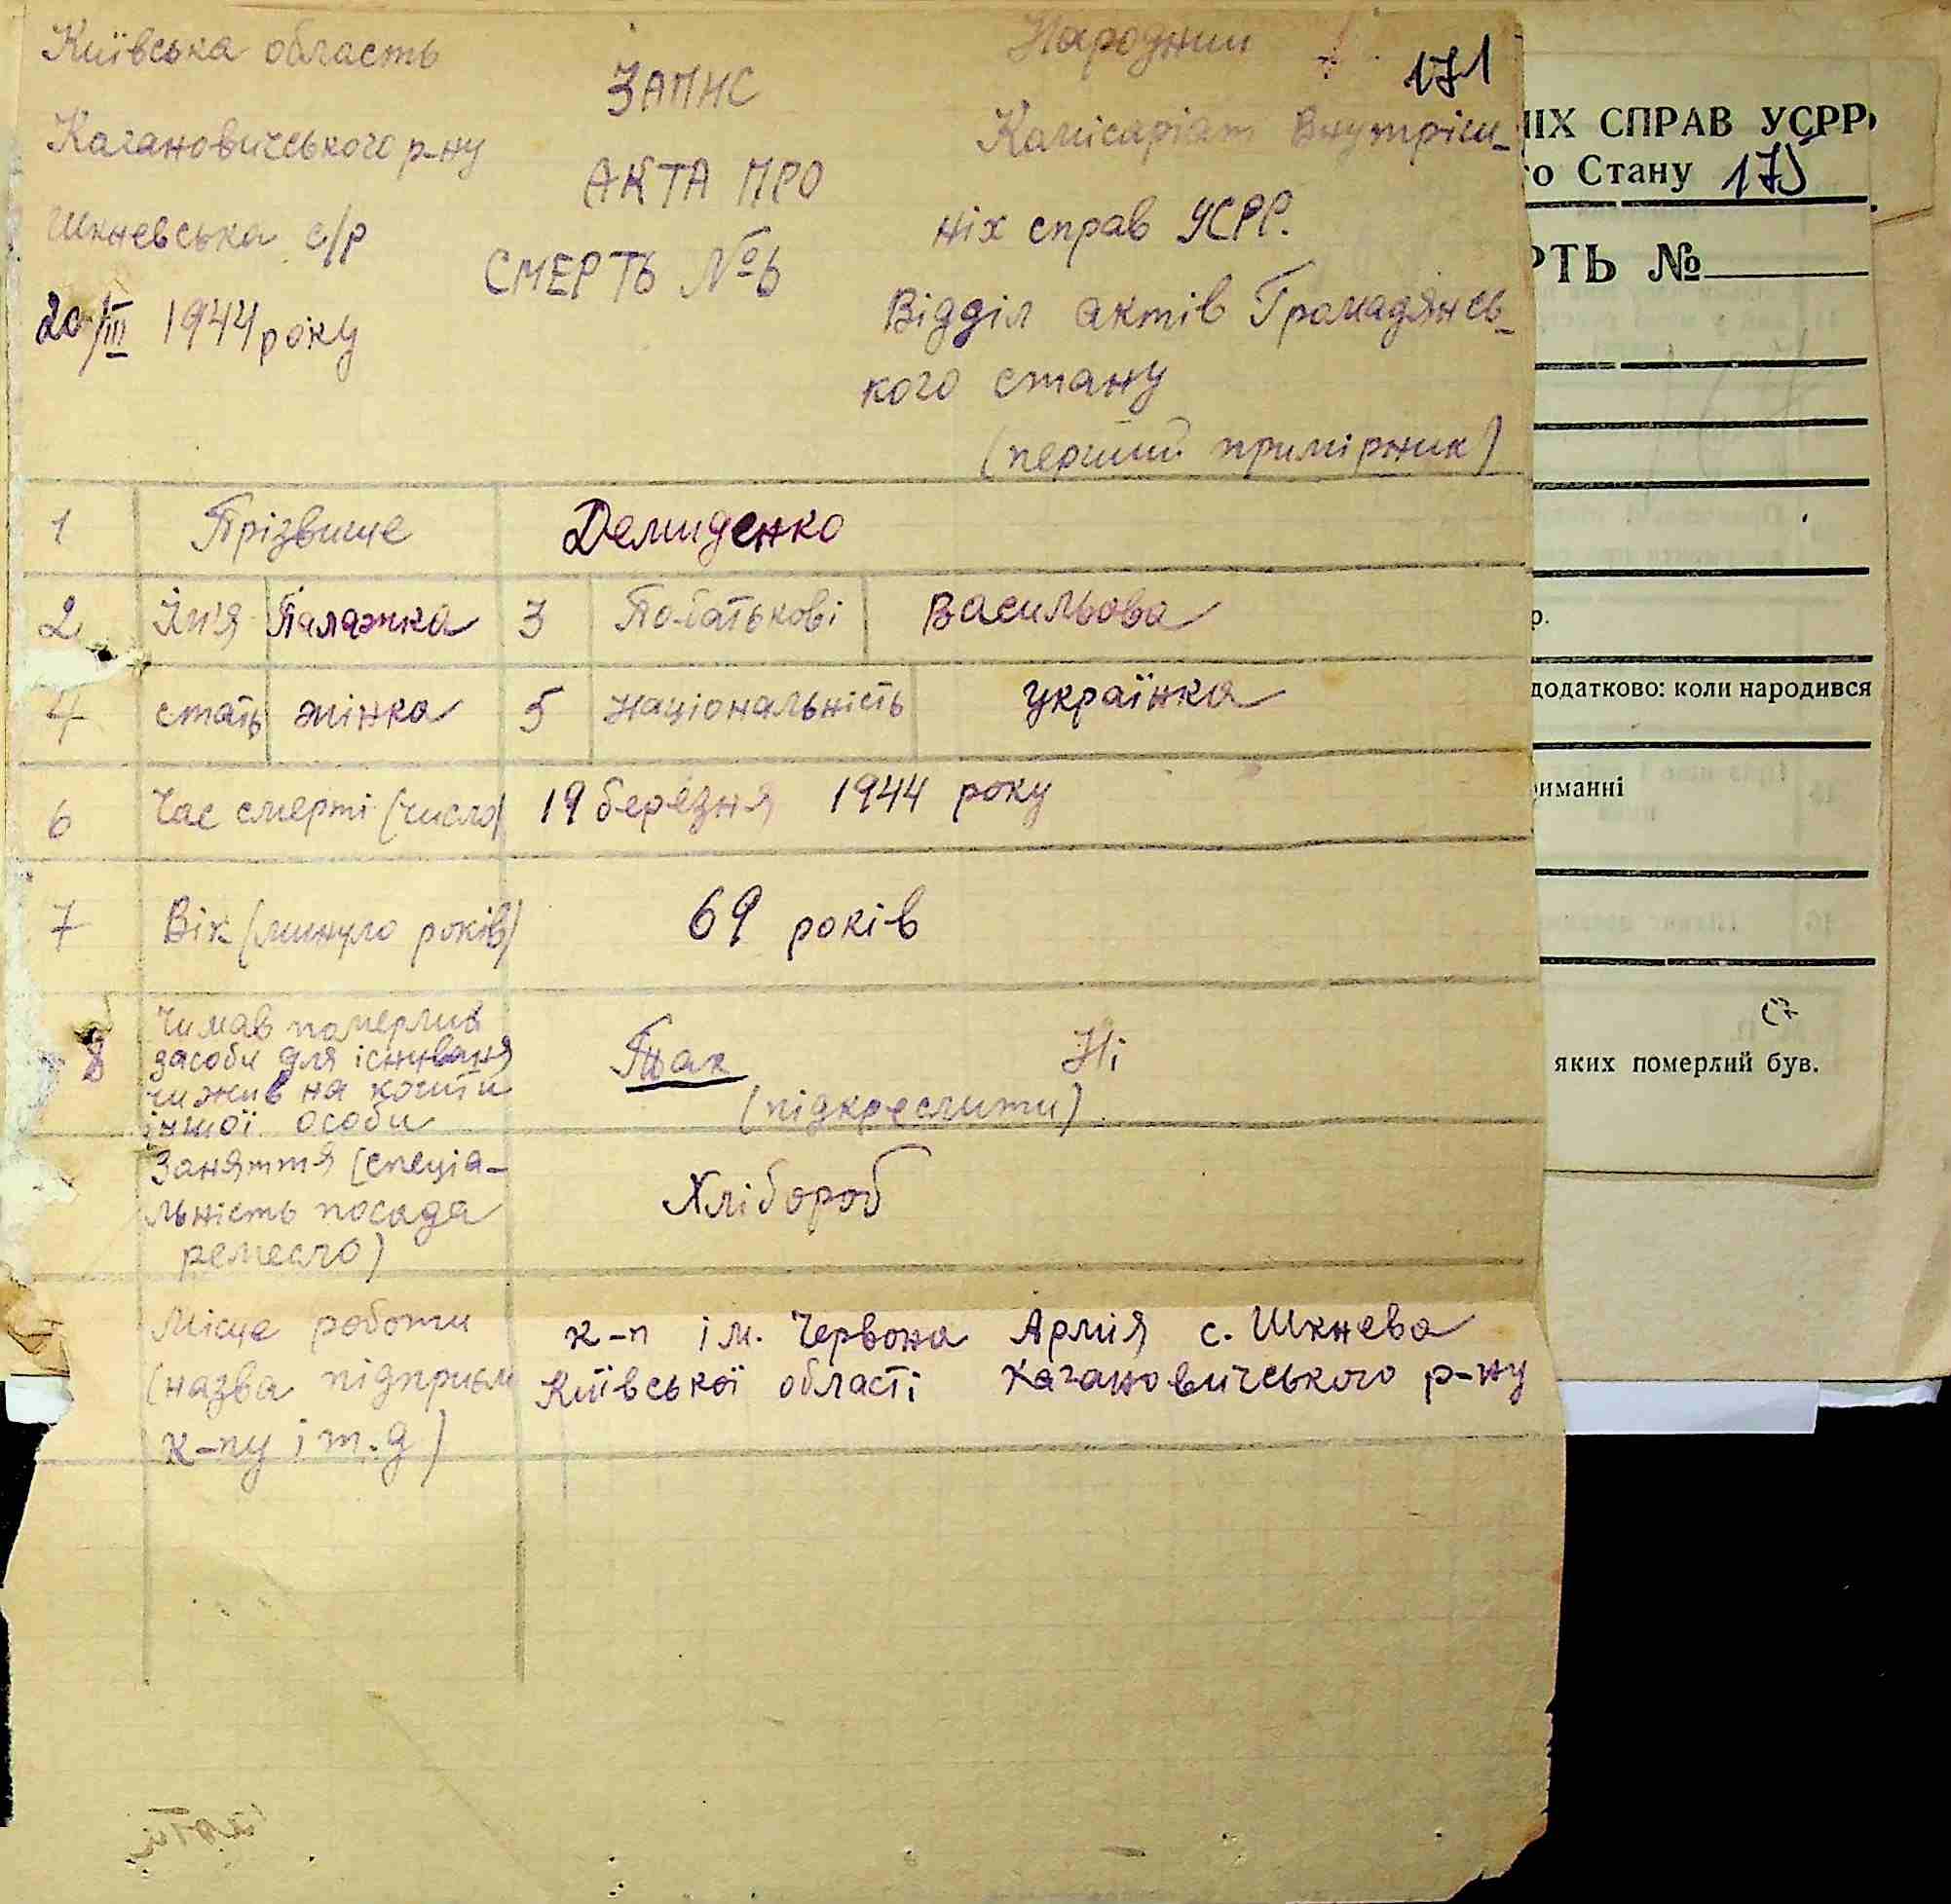 Київська область
Кагановичського р-ну
Шкневська с/р
20/III 1944 року
ЗАПИС
АКТА ПРО
СМЕРТЬ № 6
Народний
171
Комісаріат Внутріш-
ніх справ УСРР.
Відділ актів Громадянсь-
кого стану
(перший примірник)
1 Прізвище Демиденко
2 Ім'я Палажка 3 По-батькові Васильова
4 стать жінка 5 національність українка
6 Час смерті (число) 19 березня 1944 року
7 Вік (минуло років) 69 років
8 Чи мав померлий
засоби для існуваня
чи жив на кошти
іншої особи
Так Ні
(підкреслити)
Заняття (спеціа-
льність посада
ремесло)
Хлібороб
Місце роботи
(назва підприєм
к-пу і т.д)
к-п ім. Червона Армія с. Шкнева
Київської області Кагановичського р-ну
ІХ СПРАВ УСРР
го Стану 175
РТЬ №
р.
додатково: коли народився
риманні
яких померлий був.